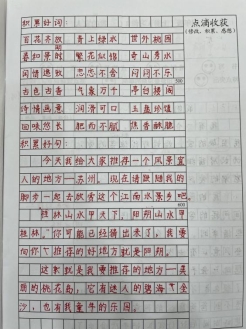 积累好词:
点滴收获
(修改、积累、感悟)
百花齐放 青上绿水 世外桃园
叠扣景时 繁花似锦 奇山秀水
闲情逸致 恋恋不舍 闷闷不乐
古色古香 气象万千 亭台楼阁
诗情画意 润滑可口 玉盘珍馐
回味悠长 肥而不腻 焦香酥脆
积累好句:
今天我给大家推荐一个风景宜
人的地方—苏州。现在请跟随我的
脚步一起去欣赏这个江南水景乡吧。
桂林山水甲天下,阳朔山水甲
桂林。"你可能已经猜出来了,我要
向你们推荐的好地方就是阳朔。
这家就是我要推荐的地方—真
的桃花岛,它有迷人的碧海
沙,也有我童年的乐园。